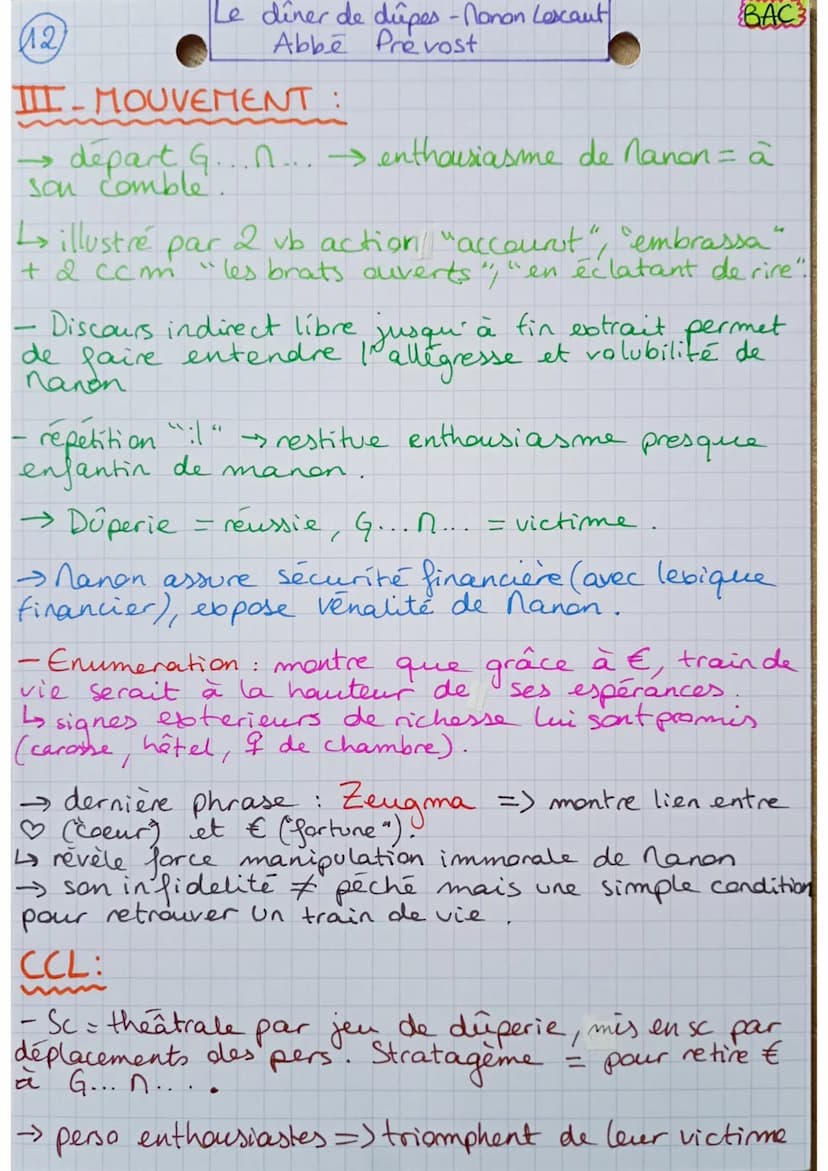 12
Le dîner de dûpes - Manon Lescaut
Abbé Prévost
BAC
III - MOUVEMENT :
→ départ G...M... → enthousiasme de Manon = à
son comble.
↳ illustré par 2 vb action "accourut", "embrassa"
+ 2 ccm "les brats ouverts", "en éclatant de rire".
- Discours indirect libre jusqu'à fin extrait permet
de faire entendre l'allégresse et volubilité de
Manon
- répétition "il" → restitue enthousiasme presque
enfantin de manon.
→ Dûperie = réussie, G...M... = victime.
→ Manon assure sécurité financière (avec lexique
financier), expose vénalité de Manon.
- Enumeration : montre que grâce à €, train de
vie serait à la hauteur de ses espérances.
↳ signes exterieurs de richesse lui sont promis
(carosse, hôtel, ♀ de chambre).
→ dernière phrase : Zeugma => montre lien entre
♡ ("coeur") et € ("fortune").
↳ révèle force manipulation immorale de Manon
→ son infidelité ≠ péché mais une simple condition
pour retrouver un train de vie.
CCL:
- Sc = théâtrale par jeu de dûperie, mis en sc par
déplacements des pers. Stratagème = pour retire €
à G... M....
→ perso enthousiastes => triomphent de leur victime